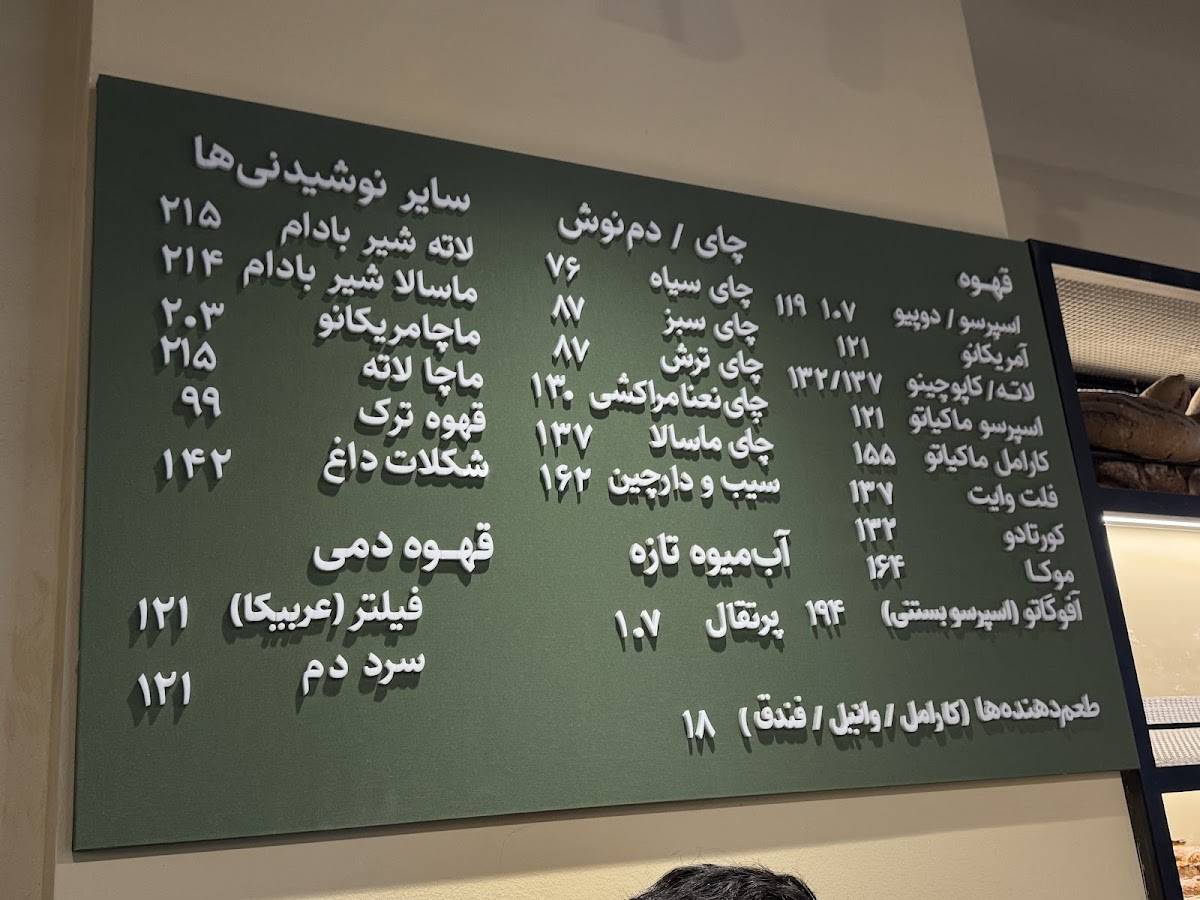 قهوه
اسپرسو / دوپیو ۱۰۷ ۱۱۹
آمریکانو ۱۲۱
لاته/ کاپوچینو ۱۳۲/۱۳۷
اسپرسو ماکیاتو ۱۲۱
کارامل ماکیاتو ۱۵۵
فلت وایت ۱۳۷
کورتادو ۱۳۲
موکا ۱۶۴
آفوگاتو (اسپرسو بستنی) ۱۹۴
طعم‌دهنده‌ها (کارامل / وانیل / فندق) ۱۸
چای / دم‌نوش
چای سیاه ۷۶
چای سبز ۸۷
چای ترش ۸۷
چای نعنا مراکشی ۱۳۰
چای ماسالا ۱۳۷
سیب و دارچین ۱۶۲
آب‌میوه تازه
پرتقال ۱۰۷
سایر نوشیدنی‌ها
لاته شیر بادام ۲۱۵
ماسالا شیر بادام ۲۱۴
ماچامریکانو ۲۰۳
ماچا لاته ۲۱۵
قهوه ترک ۹۹
شکلات داغ ۱۴۲
قهوه دمی
فیلتر (عربیکا) ۱۲۱
سرد دم ۱۲۱